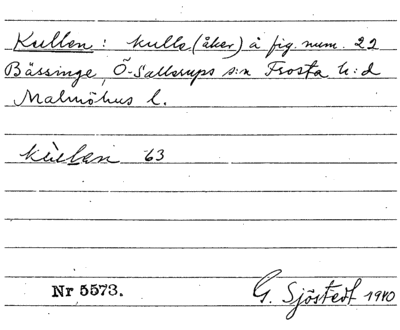 Kullen: kulle (åker) å fig. num. 22
Bässinge, Ö-Sallerups s:n Frosta h:d
Malmöhus l.
kùlan 63
Nr 5573.
G. Sjöstedt 1940